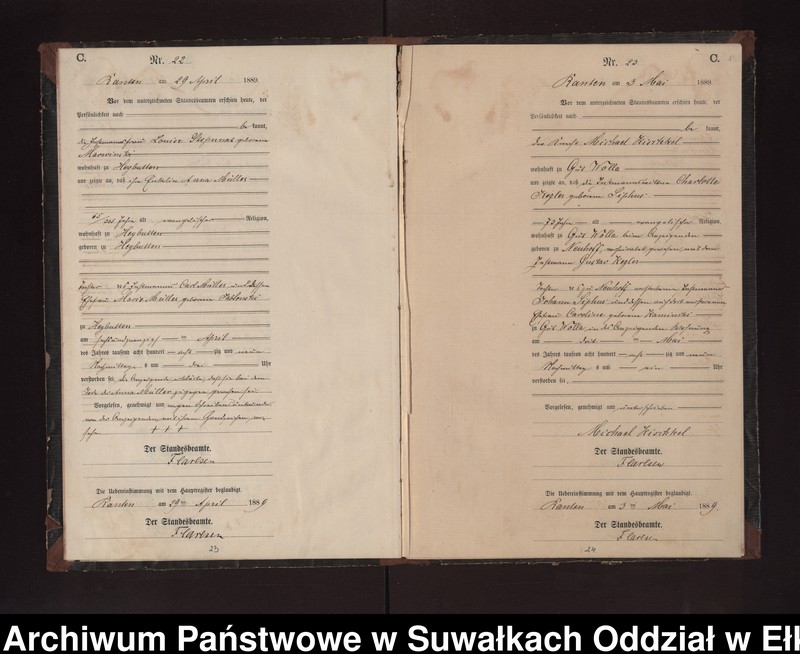 C.
Nr. 22
Kanten am 29 April 1889.
Vor dem unterzeichneten Standesbeamten erschien heute, der
Persönlichkeit nach
be kannt,
die Instmannsfrau Louise geborene
wohnhaft zu Heybutten
und zeigte an, daß ihre Enkelin Anna Müller
Jahre alt evangelischer Religion,
wohnhaft zu Heybutten
geboren zu Heybutten
Tochter des Instmanns Carl Müller und dessen
Ehefrau Marie Müller geborene
zu Heybutten
am April
des Jahres tausend acht hundert acht zig und neun
Nachmittags um drei Uhr
verstorben sei, die Anzeigende erklärte, daß sie bei dem
Tode der Anna Müller zugegen gewesen sei
Vorgelesen, genehmigt und wegen Schreibensunkunde
von der Anzeigenden mit ihrem Handzeichen ver-
sehen
+ + +
Der Standesbeamte.
F Carlsen
Die Uebereinstimmung mit dem Hauptregister beglaubigt.
Kanten am 29ten April 1889
Der Standesbeamte.
F Carlsen
23
Nr. 23
C.
Kanten am 3 Mai 1889
Vor dem unterzeichneten Standesbeamten erschien heute, der
Persönlichkeit nach
be kannt,
Michael
wohnhaft zu Gut Wolla
und zeigte an, daß die Instmannswittwe Charlotte
geborene
73 Jahre alt evangelischer Religion,
wohnhaft zu Gut Wolla beim Anzeigenden
geboren zu Neuhoff, verheirathet gewesen mit dem
Instmann Gustav
Tochter des zu Neuhoff verstorbenen Instmanns
Johann und dessen auch dort verstorbenen
Ehefrau Caroline geborene Kaminski
zu Gut Wolla in des Anzeigenden Wohnung
am drei Mai
des Jahres tausend acht hundert acht zig und neun
Nachmittags um ein Uhr
verstorben sei,
Vorgelesen, genehmigt und unterschrieben
Michael
Der Standesbeamte.
F Carlsen
Die Uebereinstimmung mit dem Hauptregister beglaubigt.
Kanten am 3ten Mai 1889.
Der Standesbeamte.
F Carlsen
24
Archiwum Państwowe w Suwałkach Oddział w Ełk